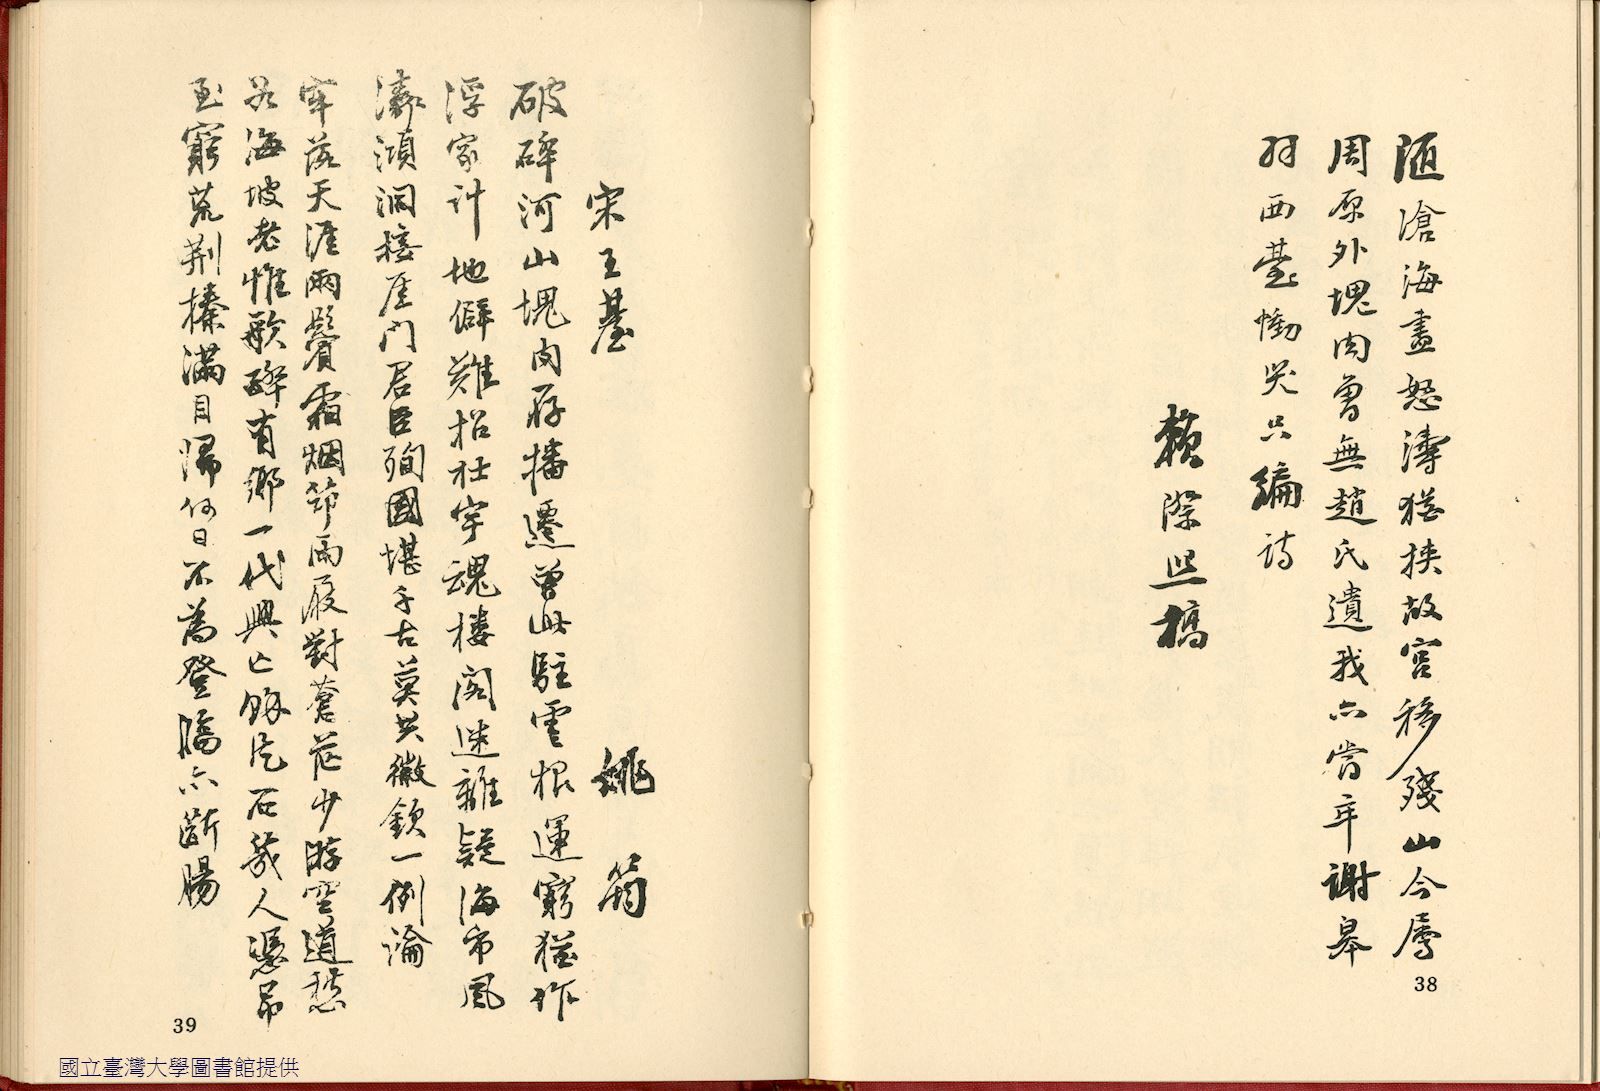 洍滄海盡怒濤猶挾故宮移殘山今屬
周原外塊肉曾無趙氏遺我亦當年謝皋
羽西臺慟哭只編詩
賴際熙稿
38
宋王臺 姚筠
破碎河山塊肉存播遷曾此駐雲根運窮猶作
浮家計地僻難招杜宇魂樓閣迷離疑海市風
濤澒洞接厓門君臣殉國堪千古莫共徽欽一例論
牢落天涯兩鬢霜烟筇雨屐對蒼茫少游空道愁
如海坡老惟歌醉有鄉一代興亡餘片石幾人憑弔
到窮荒荆榛滿目歸何日不為登臨亦斷腸
39
國立臺灣大學圖書館提供